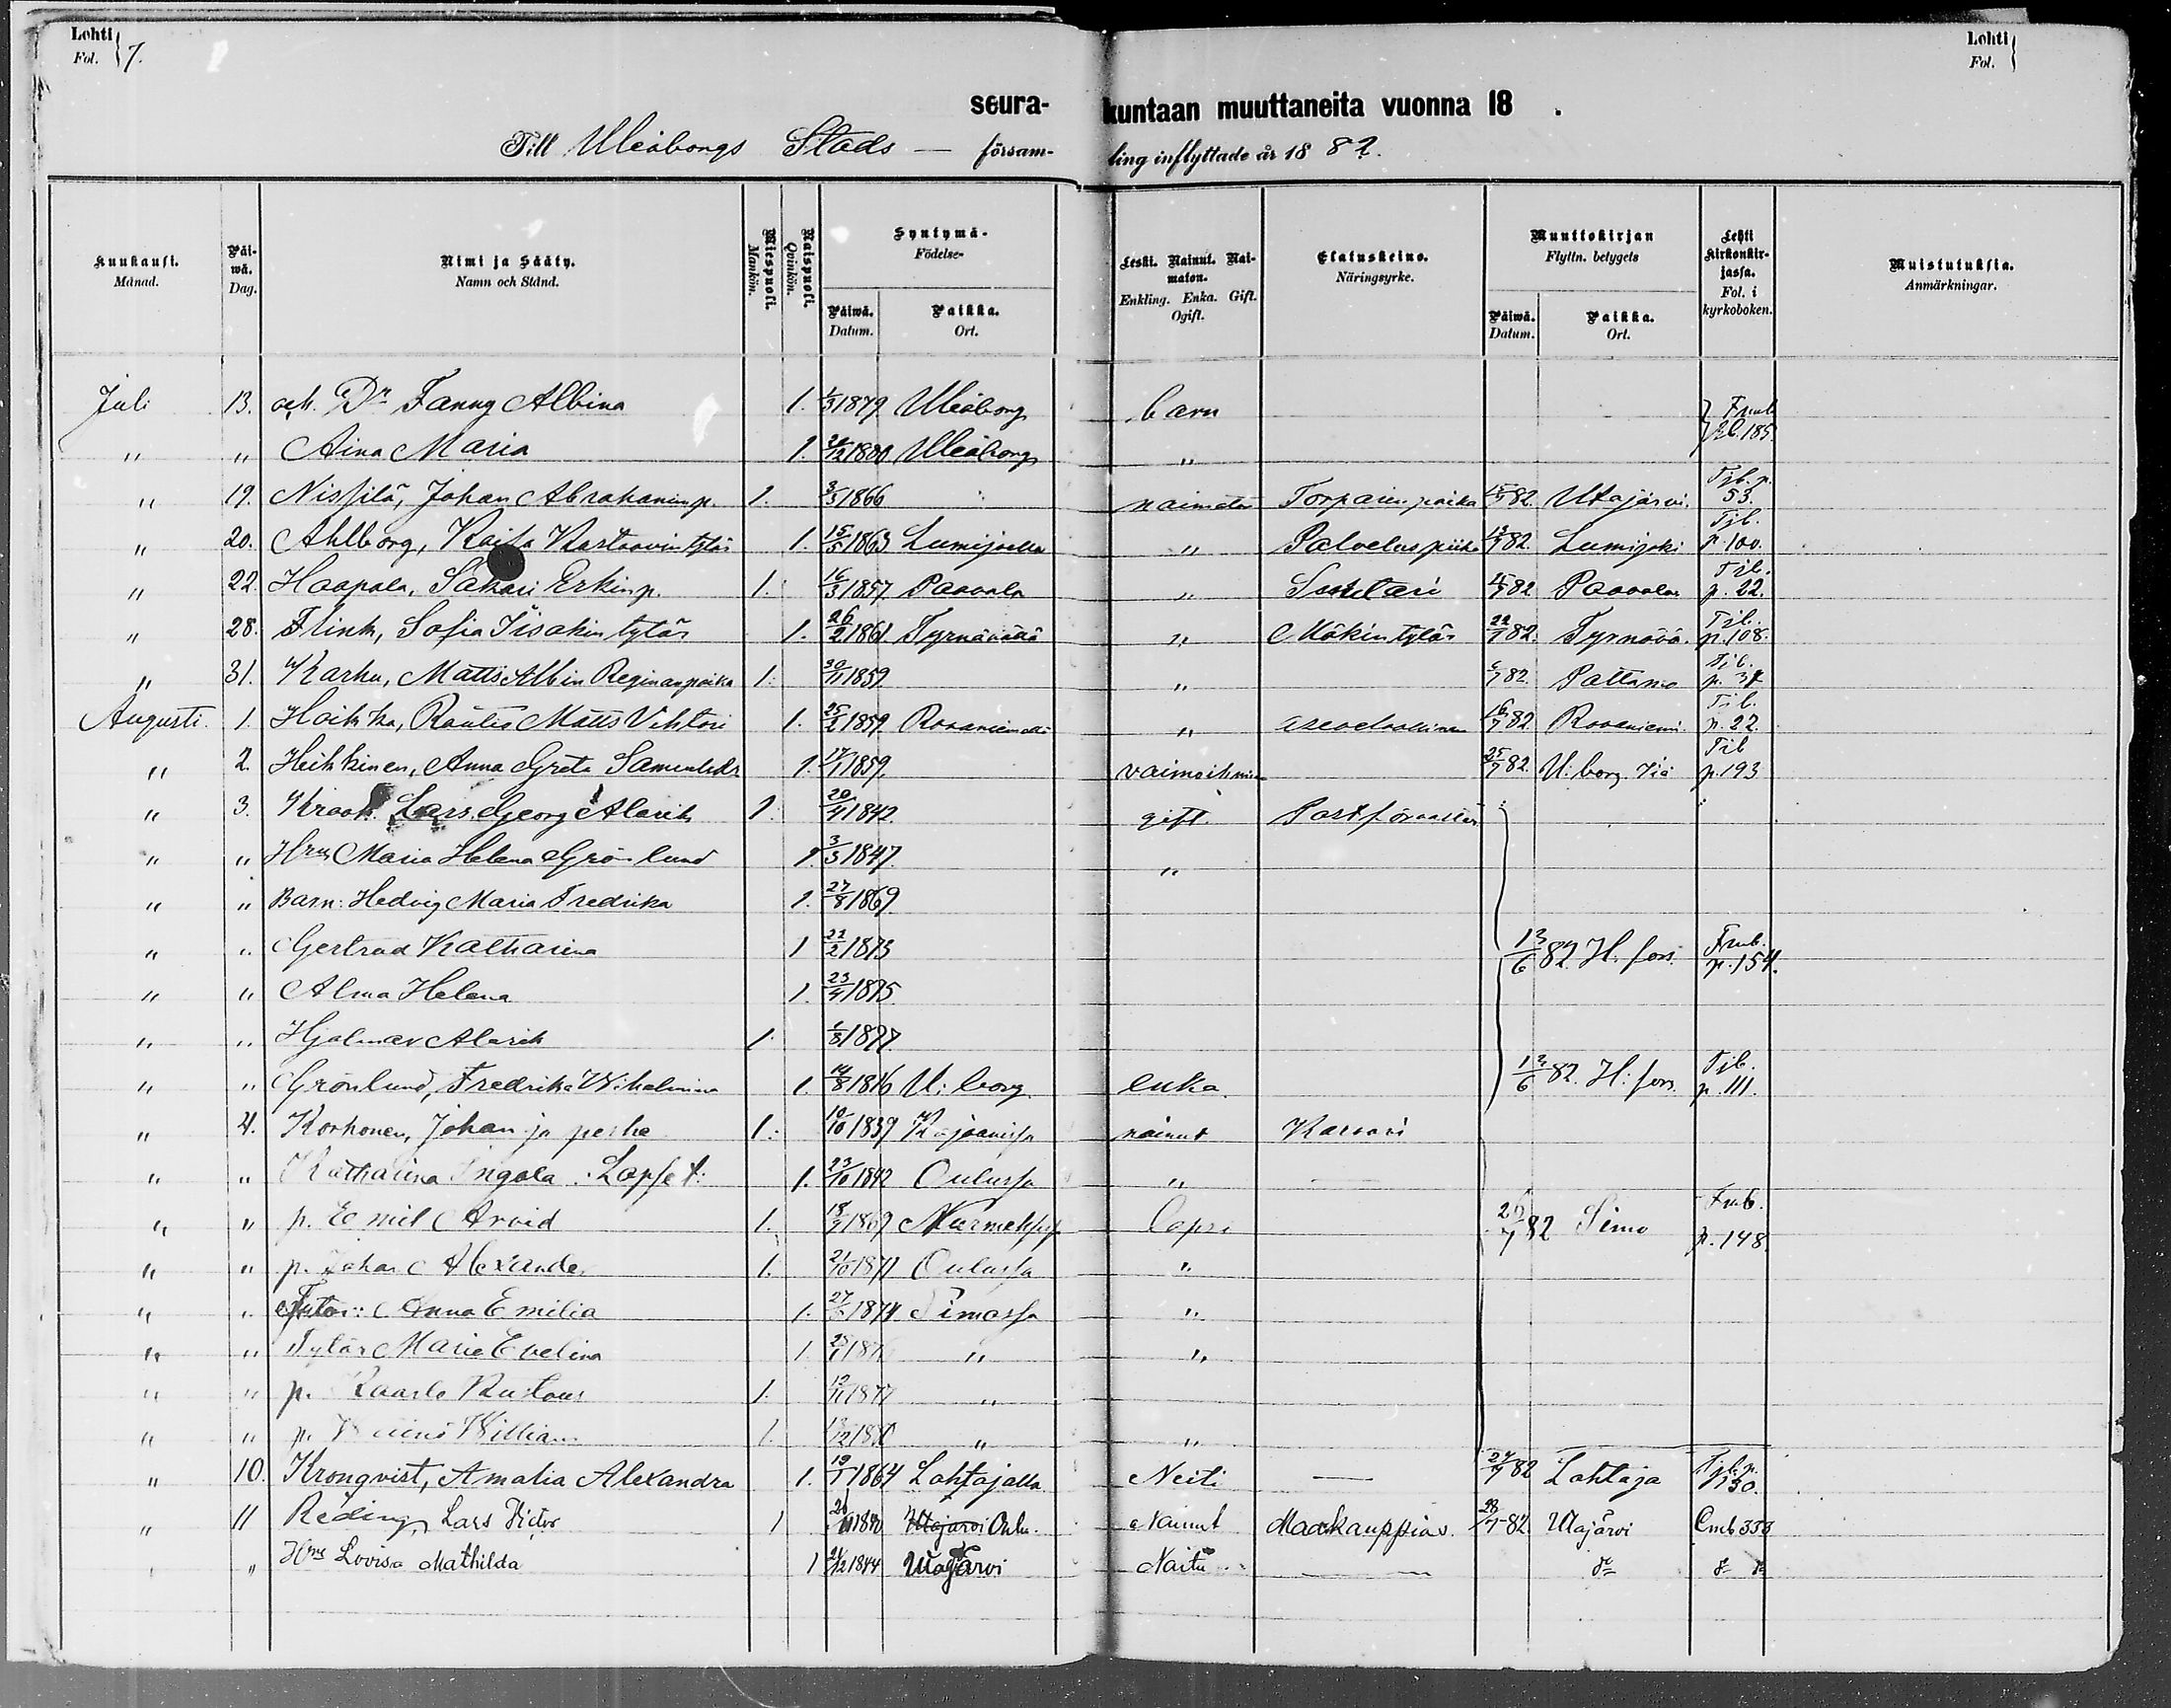 Lohti
Fol. 7.
Lohti
Fol.
seura- kuntaan muuttaneita vuonna 18 .
Till Uleåborgs Stads — försam- ling inflyttade år 18 82.
Kuukausi. Månad.
Päiwä. Dag.
Nimi ja Sääty. Namn och Stånd.
Miespuoli. Mankön.
Naispuoli. Qvinkön.
Syntymä- Födelse-
Päiwä. Datum.
Paikka. Ort.
Leski. Nainut. Naimaton. Enkling. Enka. Gift. Ogift.
Elatuskeino. Näringsyrke.
Muuttokirjan Flyttn. betygets
Päiwä. Datum.
Paikka. Ort.
Lehti Kirkonkirjassa. Fol. i kyrkoboken.
Muistutuksia. Anmärkningar.
Juli 13. och Dr Fanny Albina 1. 1879 Uleåborg barn
" " Aina Maria 1. 1880 Uleåborg " 185
" 19. Nissilä, Johan Abrahaminp. 1. 3/5 1866 naimaton Torparin poika 82. Utajärvi. Tjb. p. 53.
" 20. Ahlborg, Kaisa Kustaavintytär 1. 15/5 1863 Lumijoella " Palveluspiika 82. Lumijoki Tjb. p. 100.
" 22. Haapala, Sakari Erkinp. 1. 16/3 1857. Paavola " Suutari 82 Paavolan Tjb. p. 22.
" 28. Flink, Sofia Iisakin tytär 1. 26/2 1861 Tyrnävällä " Mäkin tytär 22/7 82. Tyrnävä. Tjb. p. 108.
" 31. Karhu, Matts Albin Reginanpoika 1. 30/11 1859. " 6/7 82. Pattamo Tjb. p. 37
Augusti. 1. Hoikka, Matts Vihtori 1. 25/2 1859. Rovaniemellä " 16/7 82. Rovaniemi. Tjb. p. 22.
" 2. Heikkinen, Anna Greta Samuelsdr 1. 17/1 1859. vaimoihmin 25/7 82. U:borg Tjb p. 193
" 3. Kraak Lars Georg Alarik 1. 20/4 1842. gift. Postförvaltar
" " Hru Maria Helena Grönlund 1. 3/3 1847. "
" " Barn: Hedvig Maria Fredrika 1. 27/8 1869.
" " Gertrud Katharina 1 22/2 1873 13/6 82. H:fors. Fmb. p. 154.
" " Alma Helena 1. 23/4 1875.
" " Hjalmar Alarik 1. 1877.
" " Grönlund, Fredrika Wilhelmina 1. 14/8 1816 U:borg. enka. 13/6 82. H:fors. Tjb. p. 111.
" 4. Korhonen, Johan ja perhe 1. 10/10 1839 Kajaanissa nainut Karvari
" " Katharina Ingala. Lapset: 1. 23/10 1842 Oulussa "
" " p. Emil Arvid 1. 1869 Lapsi 26/7 82 Simo Fmb. p. 148.
" " p. Johan Alexander 1. 21/10 1871 Oulussa "
" " Tytär: Anna Emilia 1. 1874 Simossa "
" " Tytär Maria Evelina 1. " "
" " p. Kaarlo Kustaus 1. 12/11 1877 "
" " p. William 1. " "
" 10. Kronqvist, Amalia Alexandra 1. 19/1 1864 Lohtajalla Neiti — 27/7 82 Lohtaja Tjb. p. 130.
" 11 Reding, Lars Victor 1 Utajärvi Oulu. Nainut Maakauppias. 28/7 82 Utajärvi Cmb 353
" Hru Lovisa Mathilda 1 24/12 1844 Utajärvi Naitu — do do do